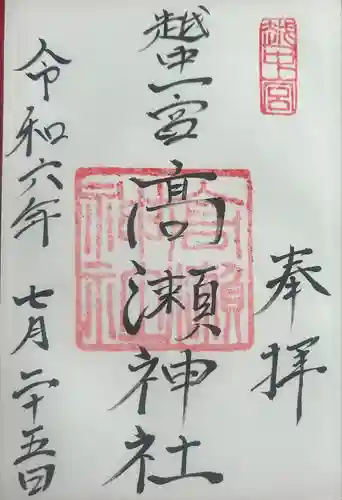 奉拝
越中一宮
越中一宮
高瀬神社
高瀬神社
令和六年
七月二十五日